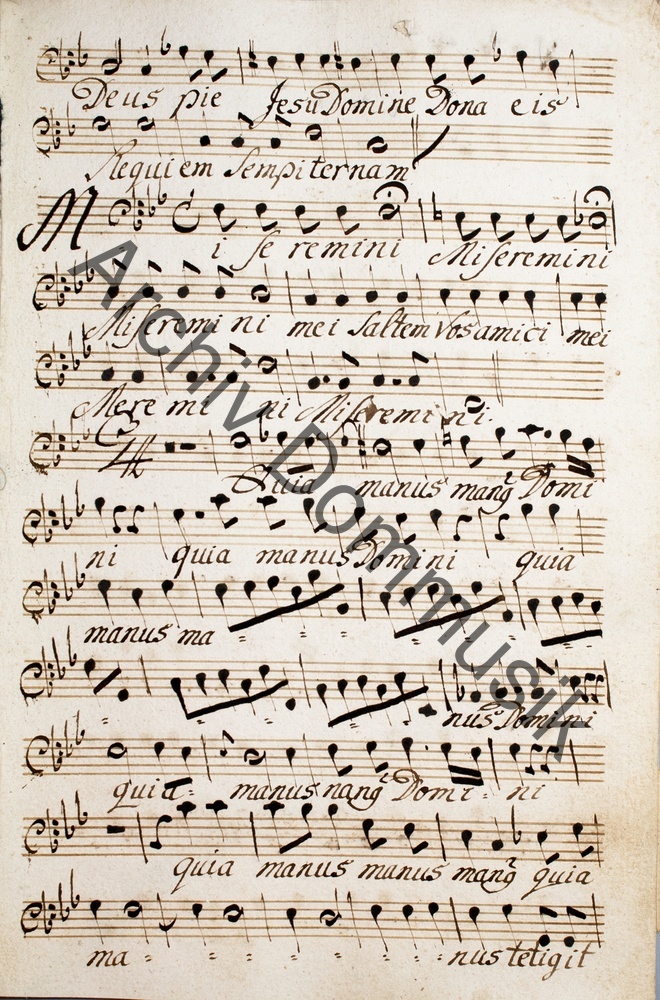 Deus pie Jesu Domine Dona eis
Requiem Sempiternam
Mi se remini Miseremini
Miseremini mei saltem vos amici mei
Mere mi ni Miseremini.
Quia manus manq Domi
ni quia manus Domini quia
manus ma - - - - - -
- - - - - nus Domini
quia - manus nanq Domi - ni
quia manus manus manq quia
ma - - - - - - - nus tetigit
Archiv Dommusik